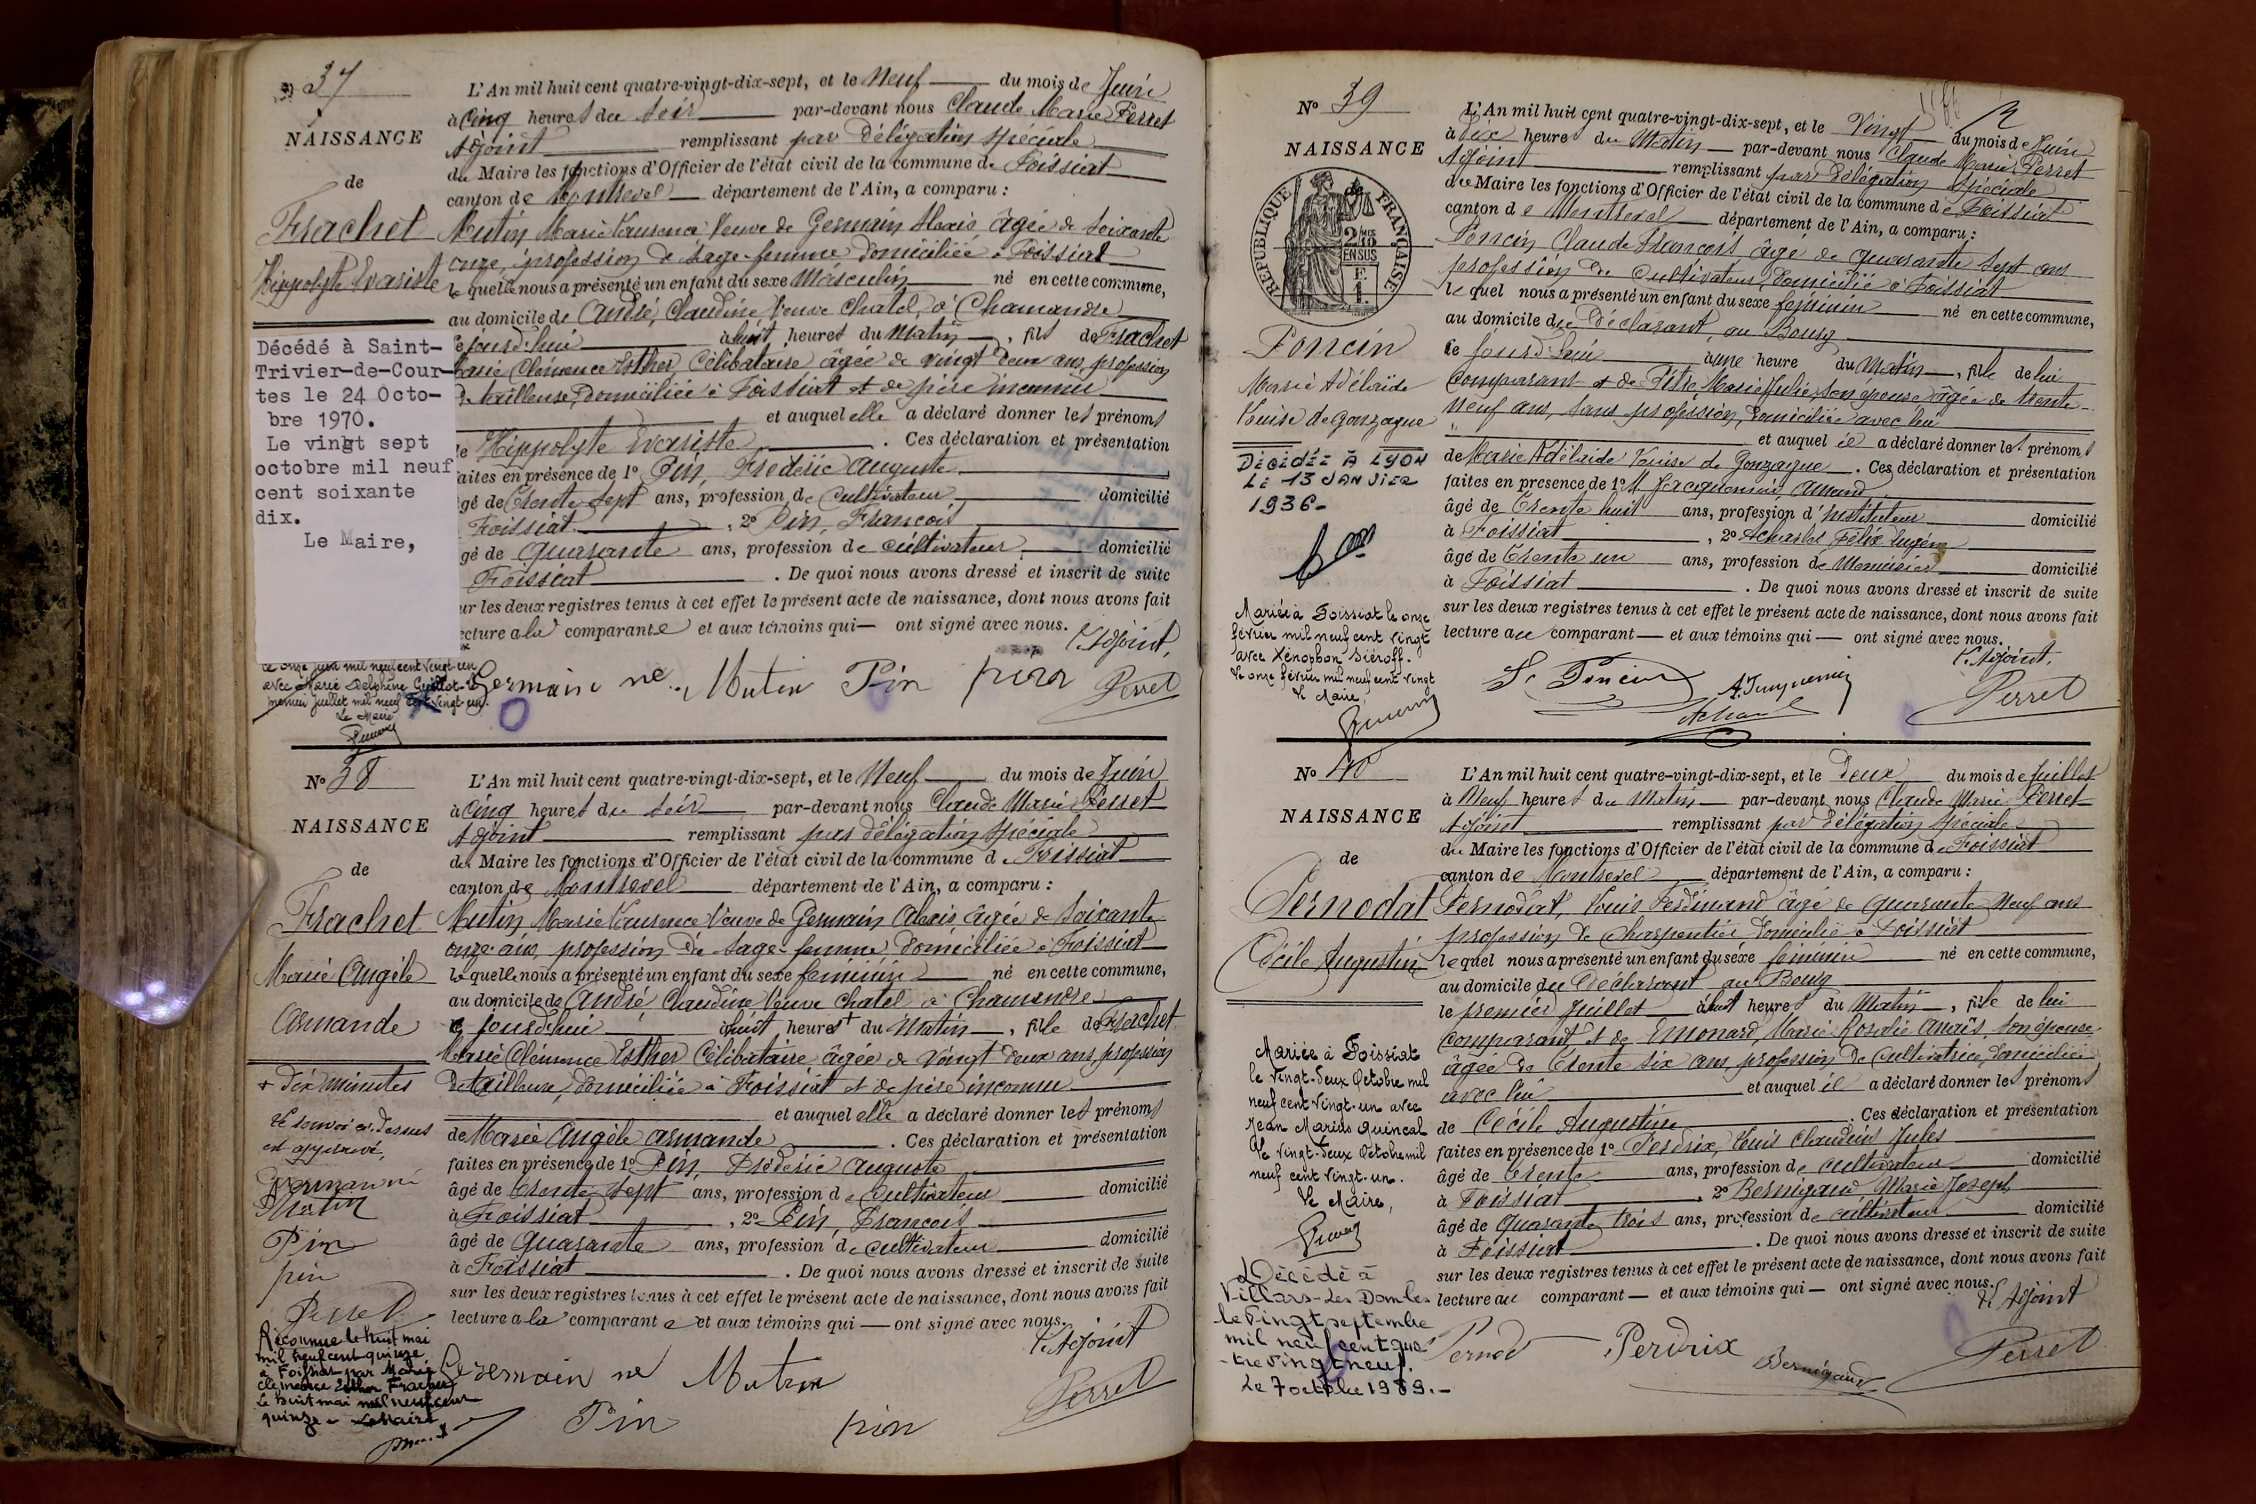 N° 37
NAISSANCE
de
Frachet
Hippolyte Evariste
Décédé à Saint-
Trivier-de-Cour-
tes le 24 Octo-
bre 1970.
Le vingt sept
octobre mil neuf
cent soixante
dix.
Le Maire,
le onze juin mil neuf cent vingt-un
avec Marie Delphine Guillot-
juillet mil neuf cent vingt-un.
Le Maire
L'An mil huit cent quatre-vingt-dix-sept, et le Neuf du mois de Juin
à Cinq heures du soir par-devant nous Claude Marie Perret
Adjoint remplissant par délégation spéciale
du Maire les fonctions d'Officier de l'état civil de la commune de Foissiat
canton de Montrevel département de l'Ain, a comparu :
Mutin, Marie Laurence Veuve de Germain Alexis âgée de Soixante
onze, profession de Sage-femme domiciliée à Foissiat
le quelle nous a présenté un enfant du sexe Masculin né en cette commune,
au domicile de André, Claudine Veuve Chatel, à Chamandre
ce jourd'hui à huit heures du Matin, fils de Frachet
Marie Clémence Esther, Célibataire âgée de vingt deux ans, profession
de tailleuse, domiciliée à Foissiat et de père inconnu
et auquel elle a déclaré donner les prénoms
de Hippolyte Evariste. Ces déclaration et présentation
faites en présence de 1° Pin, Frédéric Auguste
âgé de trente sept ans, profession de Cultivateur domicilié
Foissiat, 2° Pin, François
âgé de Quarante ans, profession de cultivateur domicilié
Foissiat. De quoi nous avons dressé et inscrit de suite
sur les deux registres tenus à cet effet le présent acte de naissance, dont nous avons fait
lecture à la comparante et aux témoins qui ont signé avec nous.
L'Adjoint,
Germain né Mutin Pin pin Perret
N° 38
NAISSANCE
de
Frachet
Marie Angèle
Armande
+ dix minutes
le renvoi ci-dessus
est approuvé,
Germain né
Mutin
Pin
pin
Perret
Reconnue le huit mai
mil neuf cent quinze
à Foissiat par Marie
Clémence Esther Frachet
Le huit mai mil neuf cent
quinze - Le Maire
L'An mil huit cent quatre-vingt-dix-sept, et le Neuf du mois de Juin
à Cinq heures du soir par-devant nous Claude Marie Perret
Adjoint remplissant par délégation spéciale
du Maire les fonctions d'Officier de l'état civil de la commune de Foissiat
canton de Montrevel département de l'Ain, a comparu :
Mutin, Marie Laurence Veuve de Germain Alexis, âgée de Soixante
onze ans, profession de Sage-femme domiciliée à Foissiat
la quelle nous a présenté un enfant du sexe féminin né en cette commune,
au domicile de André Claudine Veuve Chatel à Chamandre
ce jourd'hui à huit heures + du Matin, fille de Frachet
Marie Clémence Esther Célibataire âgée de Vingt deux ans, profession
de tailleuse, domiciliée à Foissiat et de père inconnu
et auquel elle a déclaré donner les prénoms
de Marie Angèle Armande. Ces déclaration et présentation
faites en présence de 1° Pin, Frédéric Auguste
âgé de trente sept ans, profession de Cultivateur domicilié
à Foissiat, 2° Pin, François
âgé de Quarante ans, profession de cultivateur domicilié
à Foissiat. De quoi nous avons dressé et inscrit de suite
sur les deux registres tenus à cet effet le présent acte de naissance, dont nous avons fait
lecture à la comparante et aux témoins qui ont signé avec nous.
L'Adjoint
Germain né Mutin Perret
Pin pin
N° 39
NAISSANCE
REPUBLIQUE FRANÇAISE
2/10 MES EN SUS
Poncin
Marie Adélaïde
Louise de Gonzague
DÉCÉDÉE À LYON
LE 13 JANVIER
1936-
Mariée à Foissiat le onze
février mil neuf cent vingt
avec Xénophon Siéroff.
Le onze février mil neuf cent vingt
Le Maire
L'An mil huit cent quatre-vingt-dix-sept, et le Vingt du mois de Juin
à dix heures du Matin par-devant nous Claude Marie Perret
Adjoint remplissant par délégation spéciale
du Maire les fonctions d'Officier de l'état civil de la commune de Foissiat
canton de Montrevel département de l'Ain, a comparu :
Poncin Claude François, âgé de quarante sept ans
profession de Cultivateur, domicilié à Foissiat
le quel nous a présenté un enfant du sexe féminin né en cette commune,
au domicile du déclarant, au Bourg
ce jourd'hui à une heure du Matin, fille de lui
Comparant et de Pitre Marie Julie, son épouse âgée de trente-
neuf ans, sans profession, domiciliée avec lui
et auquel il a déclaré donner les prénoms
de Marie Adélaïde Louise de Gonzague. Ces déclaration et présentation
faites en présence de 1° Jacquemin Amand
âgé de trente huit ans, profession d'Instituteur domicilié
à Foissiat, 2° Achard Félix Eugène
âgé de trente un ans, profession de Menuisier domicilié
à Foissiat. De quoi nous avons dressé et inscrit de suite
sur les deux registres tenus à cet effet le présent acte de naissance, dont nous avons fait
lecture au comparant et aux témoins qui ont signé avec nous.
L'Adjoint,
Poncin A. Jacquemin
Achard Perret
N° 40
NAISSANCE
de
Pernodat
Cécile Augustine
Mariée à Foissiat
le vingt-deux Octobre mil
neuf cent vingt-un avec
Jean Marius Quincal
Le vingt-deux Octobre mil
neuf cent vingt-un.
Le Maire,
Décédé à
Villars-Les Dombes
le vingt septembre
mil neuf cent qua
-tre vingt neuf.
Le 7 octobre 1989.-
L'An mil huit cent quatre-vingt-dix-sept, et le deux du mois de Juillet
à Neuf heures du Matin par-devant nous Claude Marie Perret
Adjoint remplissant par délégation spéciale
du Maire les fonctions d'Officier de l'état civil de la commune de Foissiat
canton de Montrevel département de l'Ain, a comparu :
Pernodat, Louis Ferdinand âgé de quarante Neuf ans
profession de charpentier domicilié à Foissiat
le quel nous a présenté un enfant du sexe féminin né en cette commune,
au domicile du déclarant au Bourg
le premier Juillet à huit heures du Matin, fille de lui
comparant, et de Emonard, Marie Rosalie Anaïs, son épouse
âgée de trente six ans, profession de cultivatrice, domiciliée
avec lui et auquel il a déclaré donner les prénoms
de Cécile Augustine. Ces déclaration et présentation
faites en présence de 1° Perdrix, Louis Claudius Jules
âgé de trente ans, profession de cultivateur domicilié
à Foissiat, 2° Bernigaud Marie Joseph
âgé de quarante trois ans, profession de cultivateur domicilié
à Foissiat. De quoi nous avons dressé et inscrit de suite
sur les deux registres tenus à cet effet le présent acte de naissance, dont nous avons fait
lecture au comparant et aux témoins qui ont signé avec nous.
L'Adjoint
Perdrix Bernigaud Perret